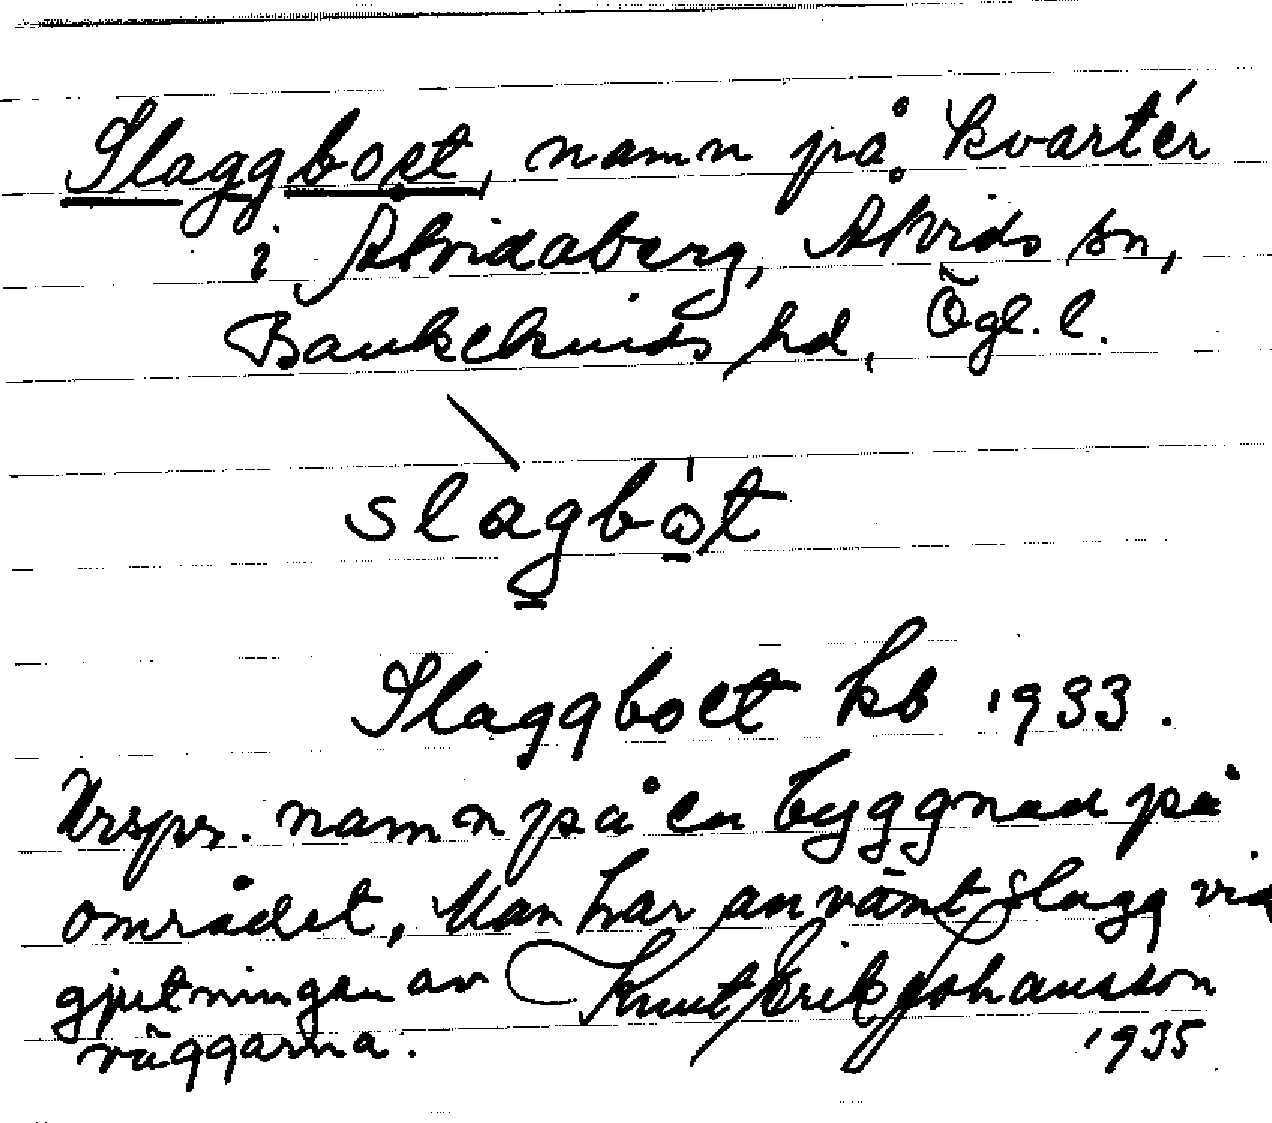 Slaggboet, namn på kvartér
i Åtvidaberg, Åtvids sn,
Bankekinds hd, Ögl. l.
slagbot
Slaggboet kb 1933.
Urspr. namn på en byggnad på
området, Man har använt slagg vid
gjutningen av
väggarna.
Knut Erik Johansson
1935